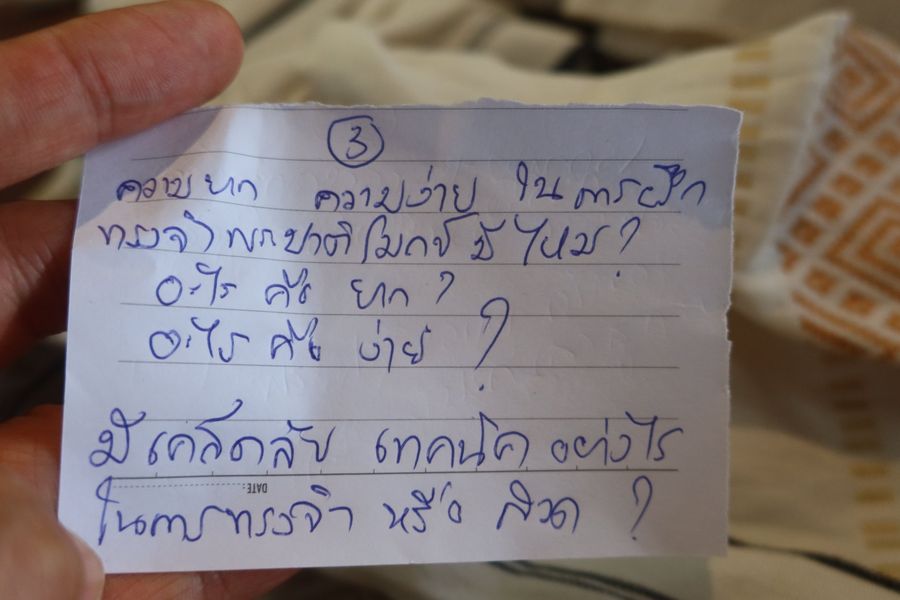 3
ความยาก ความง่าย ในการฝึก
ทรงจำพระปาติโมกข์ มีไหม?
อะไร คือ ยาก?
อะไร คือ ง่าย?
มีเคล็ดลับ เทคนิค อย่างไร
DATE:
ในการทรงจำ หรือ สวด ?